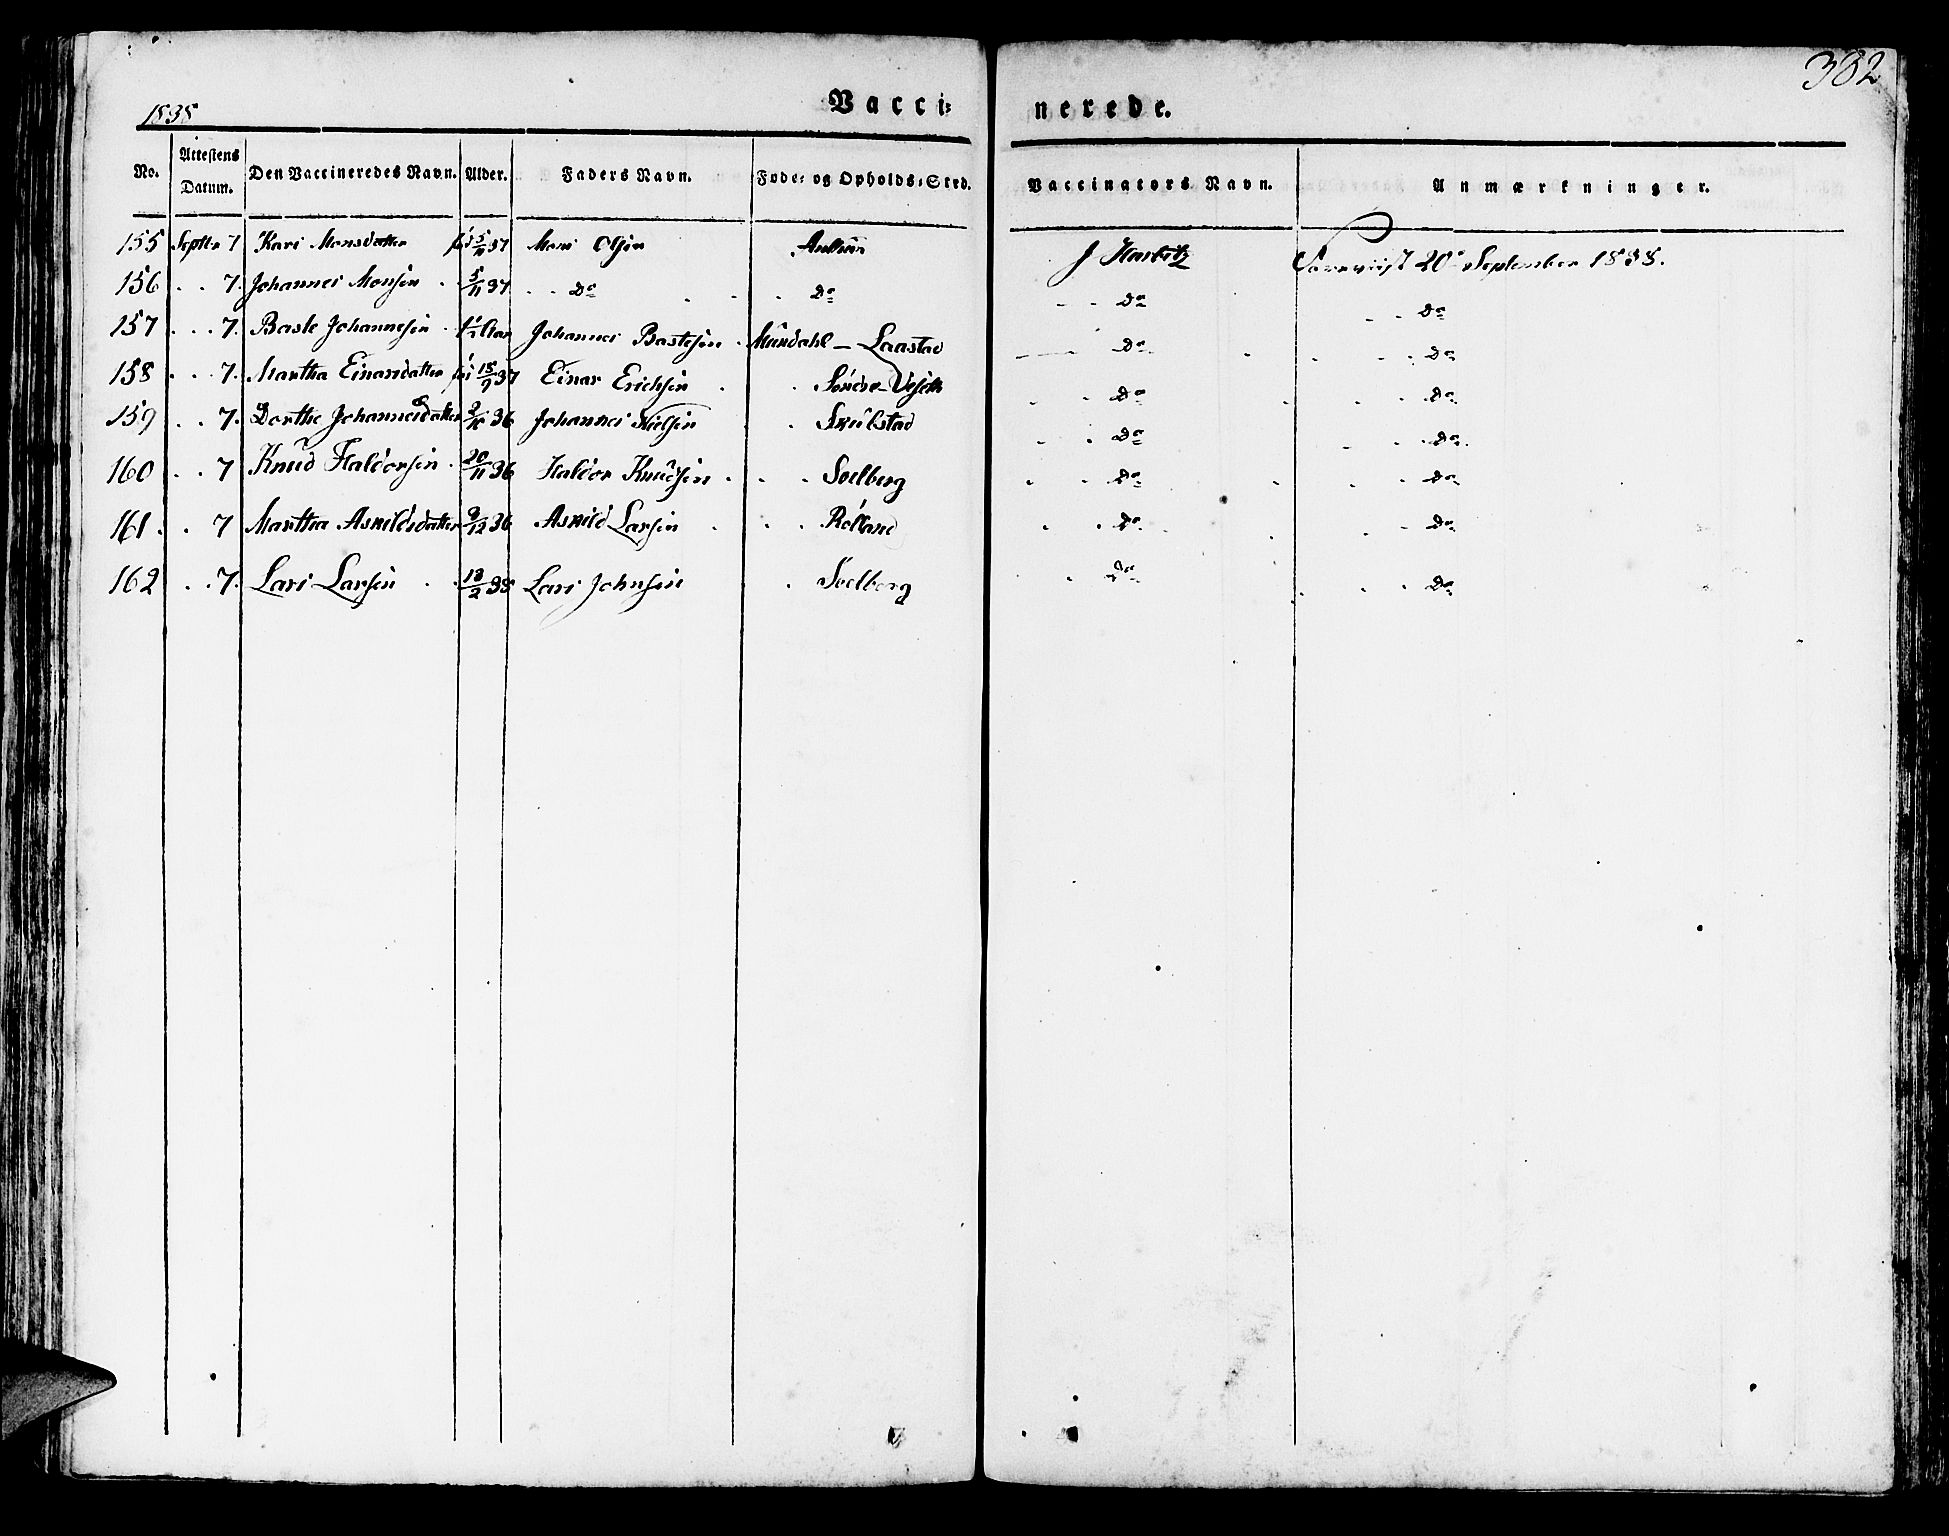 382
1838
Vacci= nerede.
No. Attestens Datum. Den Vaccineredes Navn. Alder. Faders Navn. Føde= og Opholds=Sted. Vaccinators Navn. Anmærkninger.
155 Septbr 7 Kari Monsdatter 5/11 37 Mons Olsen J Harbitz Foreviist 20de September 1838.
156 . . 7. Johannes Monsen 5/11 37 . . Do . . . Do - - Do . . Do
157 . . . 7. Baste Johannesen 1 1/2 Aar Johannes Bastesen Mundahl - Laastad Do . . . Do
158 . . 7. Martha Einarsdatter 15/9 37 Einar Erichsen . . Søndre Do . . Do
159 . . 7. Dorthe Johannesdatter 2/10 36 Johannes Nielsen . . Skulstad Do . . Do
160 . . 7 Knud Haldorsen 20/11 36 Haldor Knudsen . . . Soelberg Do . . . Do
161 . . 7 Martha Asmildsdatter 9/12 36 Asmild Larsen . . . Rolland Do . . Do
162 . . 7. Lars Larsen 18/2 38 Lars Johnsen . Soelberg Do . . . Do